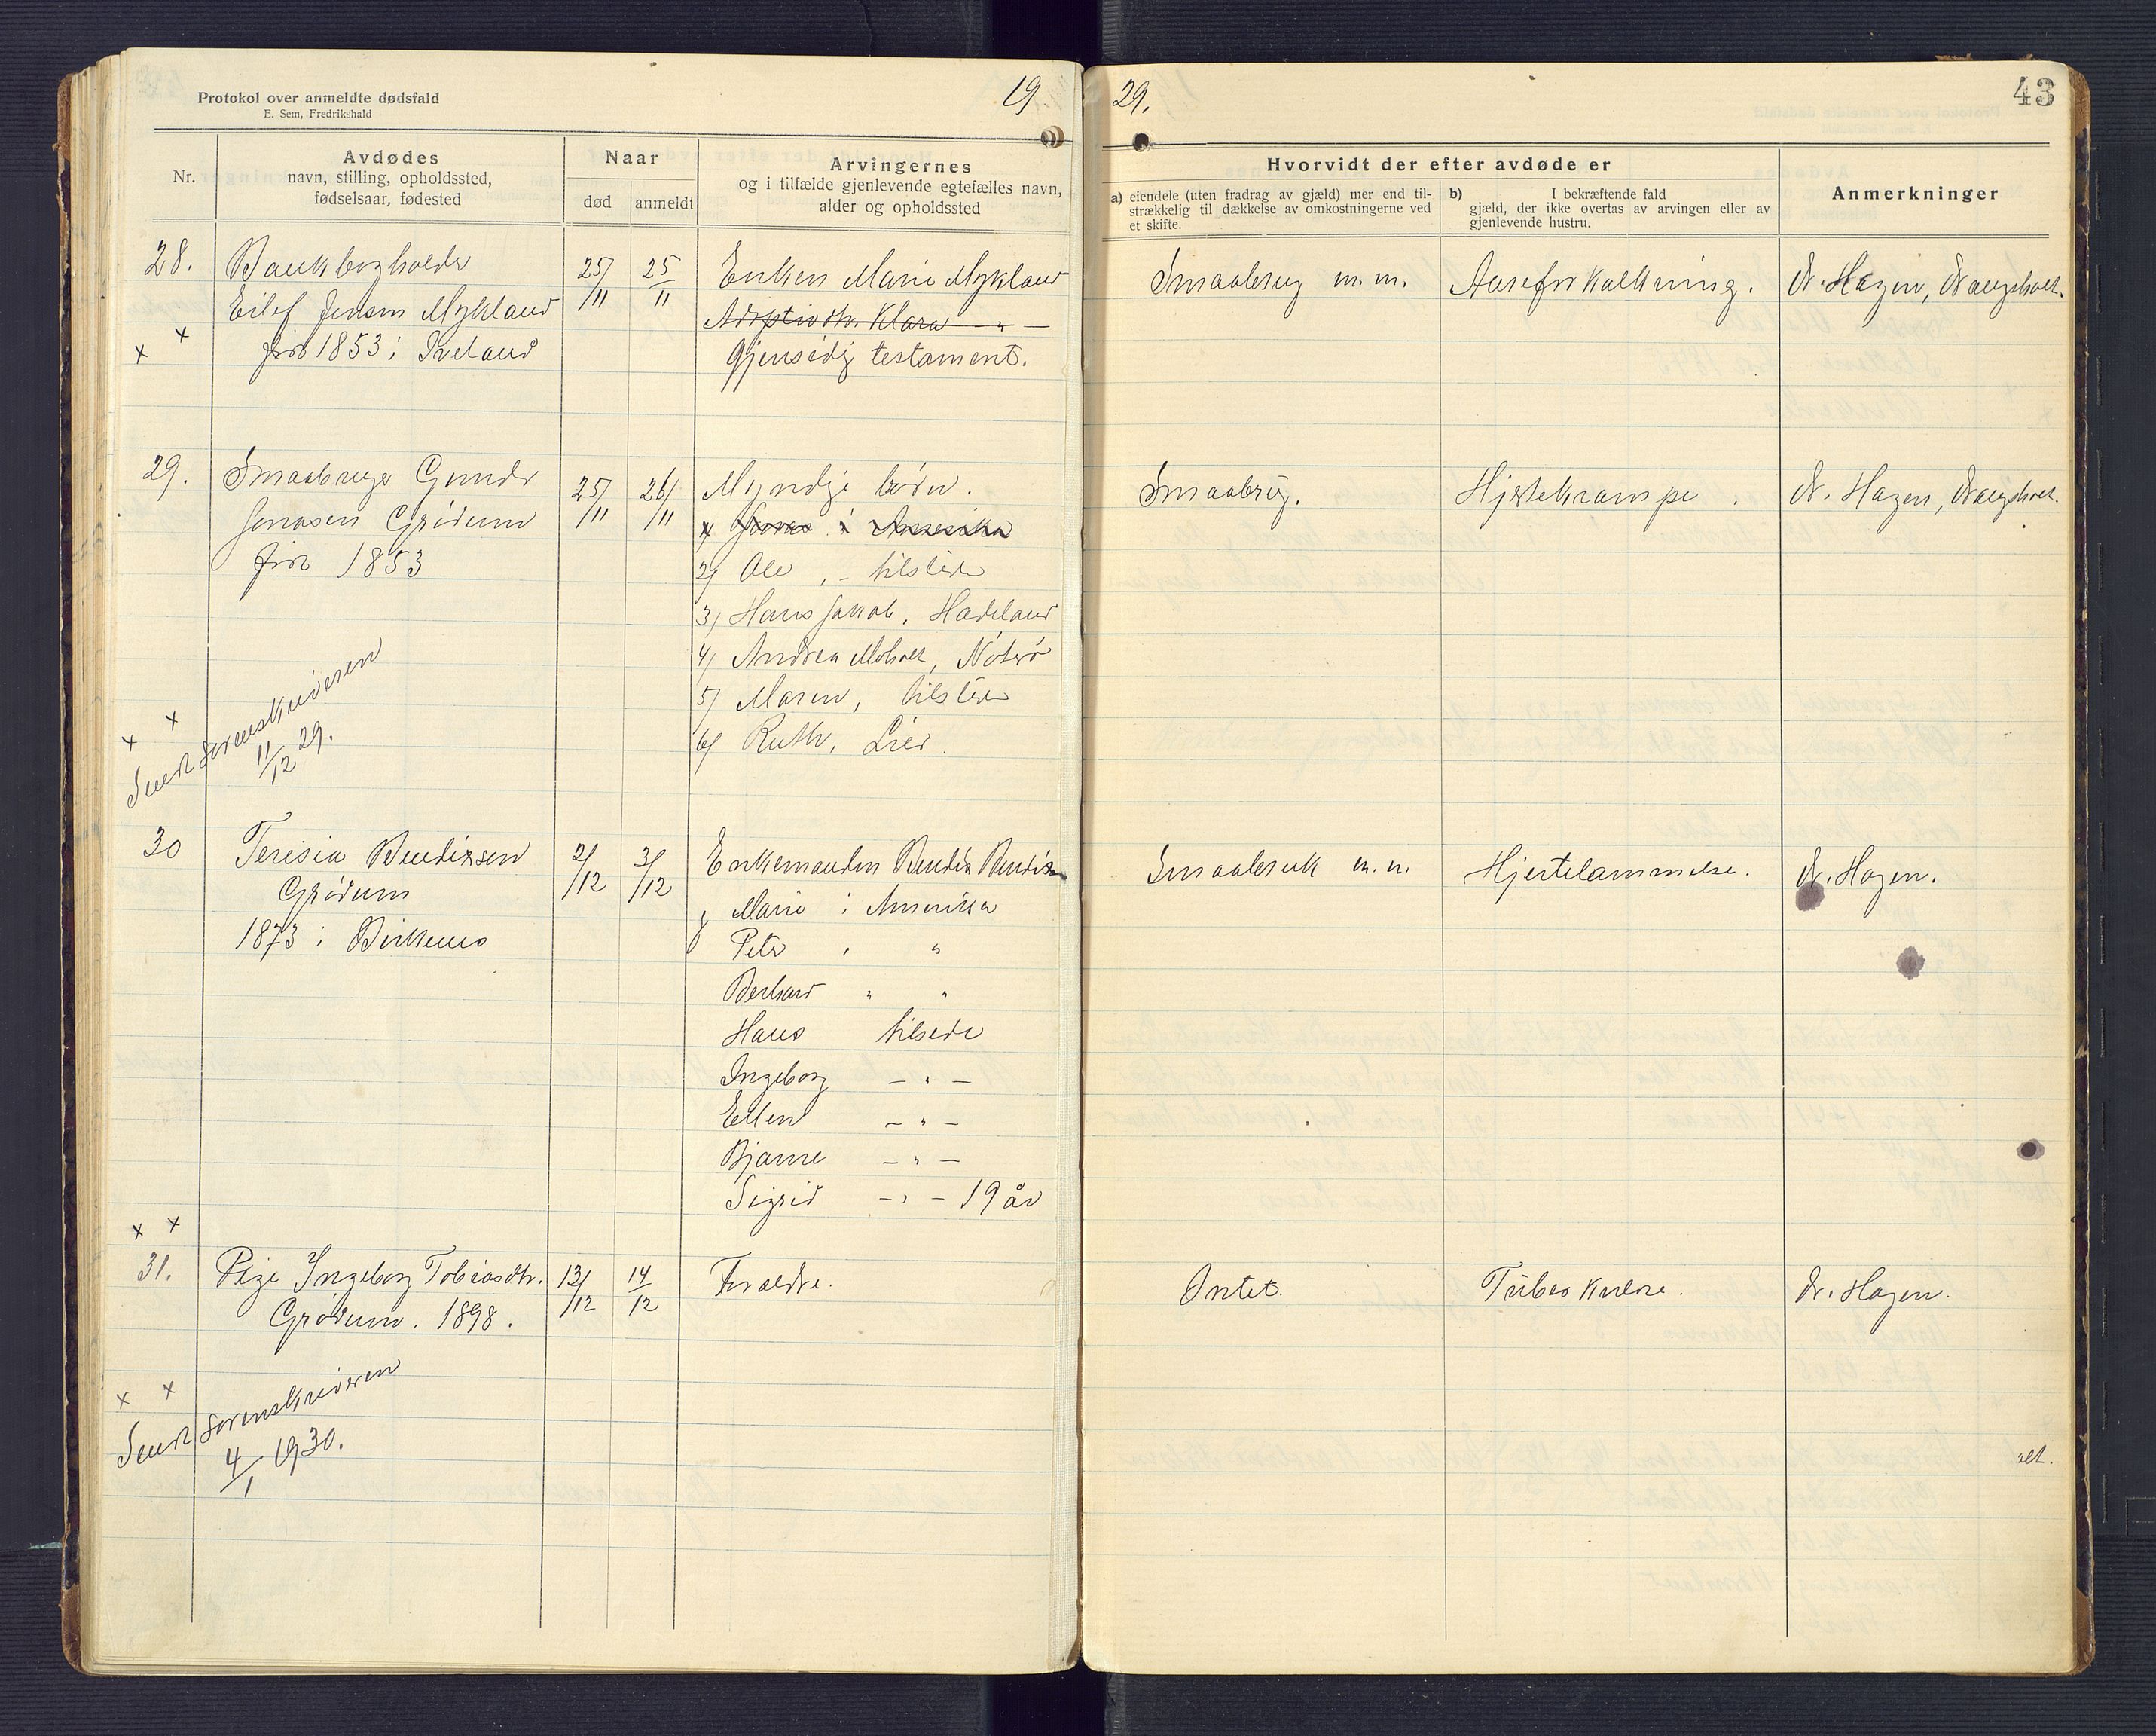 Protokol over anmeldte dødsfald
E. Sem, Fredrikshald
19
29.
43
Nr.
Avdødes
navn, stilling, opholdssted,
fødselsaar, fødested
Naar
død
anmeldt
Arvingernes
og i tilfælde gjenlevende egtefælles navn,
alder og opholdssted
Hvorvidt der efter avdøde er
a) eiendele (uten fradrag av gjæld) mer end til-
strækkelig til dækkelse av omkostningerne ved
et skifte.
b) I bekræftende fald
gjæld, der ikke overtas av arvingen eller av
gjenlevende hustru.
Anmerkninger
28.
Bankbogholder
Eilef Jensen Mykland
født 1853 i Iveland
x x
25/11
25/11
Enken Marie Mykland
Adoptivdtr. Klara - " -
Gjensidig testament.
Smaabrug m.m.
Aareforkalkning.
dr. Hagen,
29.
Smaabruger Gunder
Jonasen Grødum
født 1853
25/11
26/11
Myndige børn.
1/ Jonas i Amerika
2/ Ole, - tilstede
3/ Hans Jakob, Hadeland
4/ Andrea Moholt, Nøterø
5/ Maren, tilstede
6/ Ruth, Lier.
Smaabrug.
Hjertekrampe.
dr. Hagen,
x x
Sendt sorenskriveren
11/12 29.
30
Teresia Bendixsen
Grødum
1873 i Birkenes
2/12
3/12
Enkemanden Bendix Bendixsen
Marie i Amerika
Peter , "
Berhard " "
Hans tilstede
Ingeborg - " -
Ellen - " -
Bjarne - " -
Sigrid - " - 19 år
Smaabruk m.m.
Hjertelammelse.
dr. Hagen.
x x
31.
Pige Ingeborg Tobiasdtr.
Grødum. 1898.
13/12
14/12
Forældre.
Intet.
Tuberkulose.
dr. Hagen.
x x
Sendt sorenskriveren
4/1 1930.